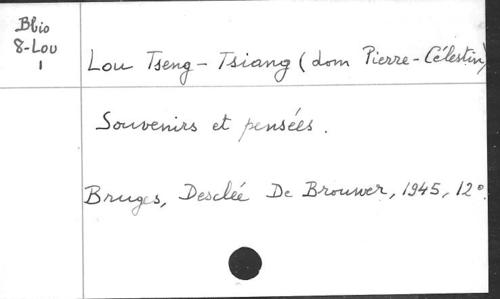 Bbio
8-Lou
1
Lou Tseng-Tsiang (dom Pierre-Célestin)
Souvenirs et pensées.
Bruges, Desclée De Brouwer, 1945, 12°.